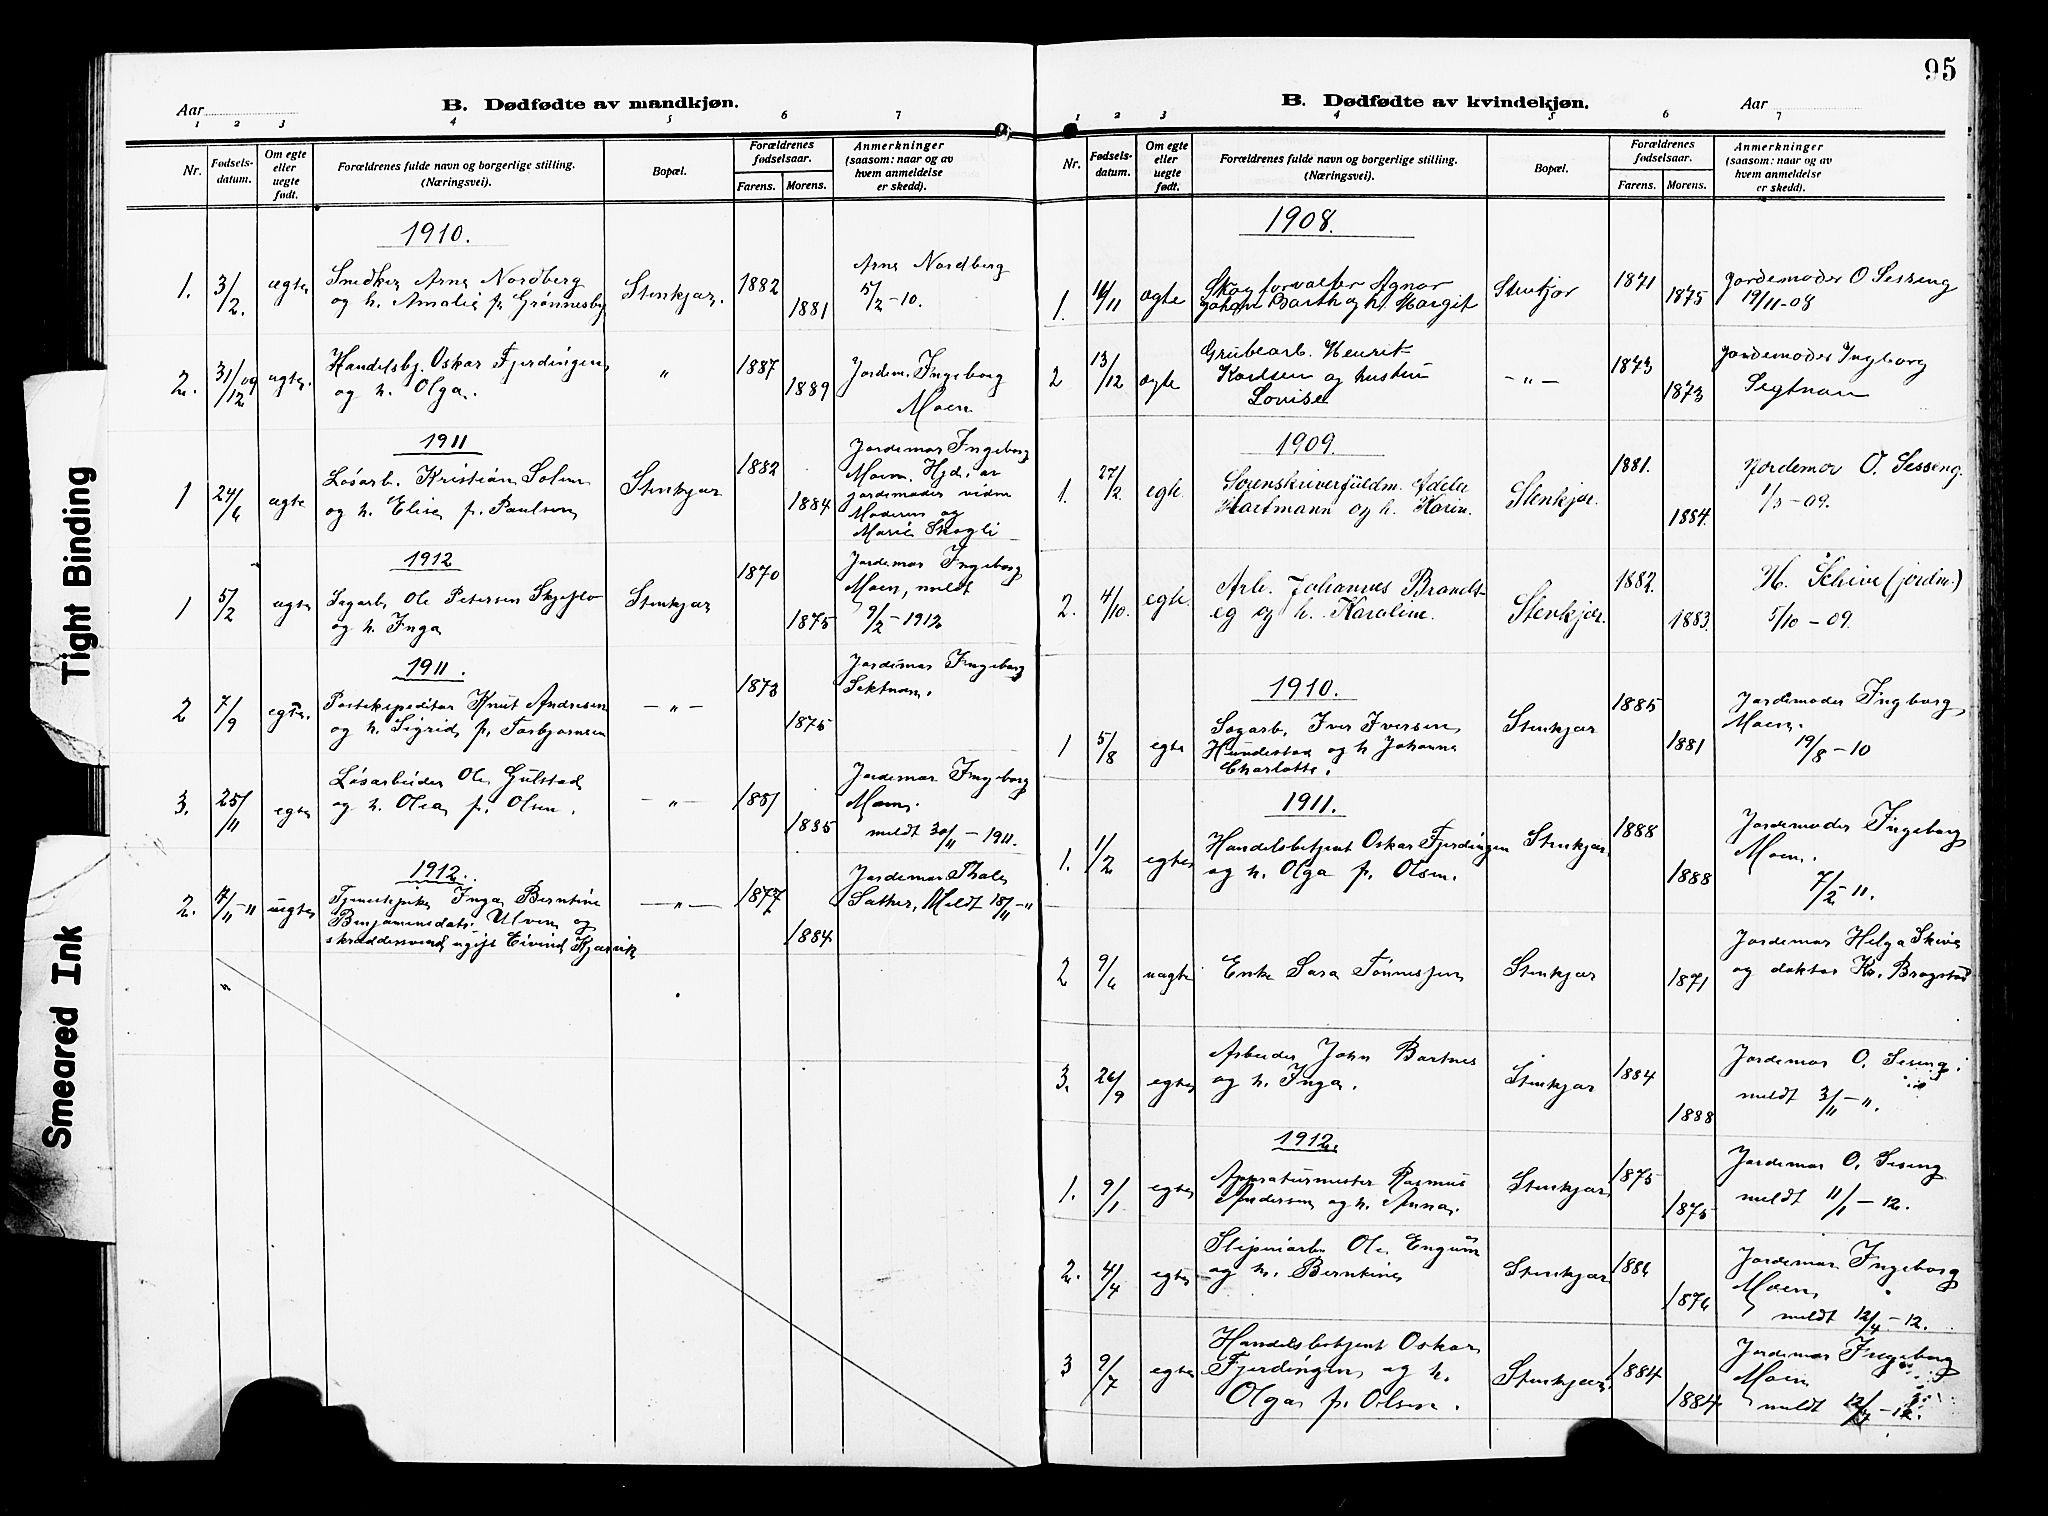 Tight Binding
Smeared Ink
Aar
B. Dødfødte av mandkjøn.
1 2 3 4 5 6 7
Nr.
Fødsels-
datum.
Om egte
eller
uegte
født.
Forældrenes fulde navn og borgerlige stilling.
(Næringsvei).
Bopæl.
Forældrenes
fødselsaar.
Farens. Morens.
Anmerkninger
(saasom: naar og av
hvem anmeldelse
er skedd).
1910.
1. 3/2. ægte Snedker Arne Nordberg Stenkjær. 1882 Arne Nordberg
og h. Amalie f. Grønnesby 1881 5/2-10.
2. 31/12 09 ægte. Handelsbj. Oskar Fjerdingen " 1887 Jordem. Ingeborg
og h. Olga. 1889 Moen
1911
1 24/6 ægte Løsarb. Kristian Solum Stenkjær 1882 Jordemor Ingeborg
Moen. Hjd. av
og h. Elise f. Paulsen 1884 jordemoder vidne
Moderen og
Marie Skogli
1912
1 5/2 ægte Ole Petersen Stenkjær 1870 Jordemor Ingeborg
Moen, meldt
og h. Inga 1875 9/2-1912
1911.
2 7/9 egte. Postekspeditør Knut Andresen -"- 1873 Jordemor Ingeborg
Sektnan.
og h. Sigrid f. Torbjørnsen 1875
3. 25/11 egte Løsarbeider Ole Gulstad -"- 1851 Jordemor Ingeborg
og h. Olea f. Olsen. Moen.
1885 meldt 30/11-1911.
1912.
2. 17/11-" uegte Tjenestepike Inga Berntine -"- 1877 Jordemor Thale
Benjaminsdatr. Ulven og Sæther, Meldt 18/11-"
skræddersvend ugift Eivind Kjærvik 1884
"
95
B. Dødfødte av kvindekjøn.
Aar
1 2 3 4 5 6 7
Nr.
Fødsels-
datum.
Om egte
eller
uegte
født.
Forældrenes fulde navn og borgerlige stilling.
(Næringsvei).
Bopæl.
Forældrenes
fødselsaar.
Farens. Morens.
Anmerkninger
(saasom: naar og av
hvem anmeldelse
er skedd).
1908.
1. 14/11 ægte Skogforvalter Agnar Stenkjær 1871 Jordemoder O Sesseng
Johan Barth og h. Margit 1875 19/11-08
2 13/12 ægte Grubearb. Henrik 1873 Jordemoder Ingborg
Karlsen og hustru -"- 1873 Segtnan
Lovise
1909.
1. 27/2. egte Sorenskriverfuldm. Adeler Stenkjær. 1881. Jordemor O. Sesseng.
Hartmann og h. Karin. 1884. 1/3-09.
2. 4/10. egte. Arb. Johannes Brands- Stenkjær. 1882. H. Schive (jordm.)
eg og h. Karoline. 1883. 5/10-09.
1910.
1 5/8 egte Sagarb. Iver Iversen Stenkjær 1885 Jordemoder Ingborg
Hundestad og h Johanna 1881 Moen.
Charlotte. 19/8-10
1911.
1. 1/2 egte Handelsbetjent Oskar Fjerdingen Stenkjær. 1888 Jordemoder Ingeborg
og h. Olga f. Olsen. 1888 Moen.
7/2-11.
2 9/6 uægte Enke Sara Tønnesen Stenkjær 1871 Jordemor Helga Skive
og doktor Kr. Bragstad
3. 26/9 egte Arbeider John Bartnes Stenkjær 1884 Jordemor O. Seseng.
og h. Inga. 1888 meldt 3/11-".
1912.
1. 9/1 egte Apparaturmester Rasmus Stenkjær 1875 Jordemor O. Seseng
Andersen og h. Anna. 1875 meldt 11/1-12.
2. 4/4 egte Sliperiarb. Ole Engum Stenkjær 1886 Jordemor Ingeborg
og h. Berntine 1876 Moen
meldt 12/4-12.
3 9/7 egte Handelsbetjent Oskar Stenkjær. 1884 Jordemor Ingeborg
Fjerdingen og h. Moen
Olga f. Olsen. 1884 meldt 12/7-12.